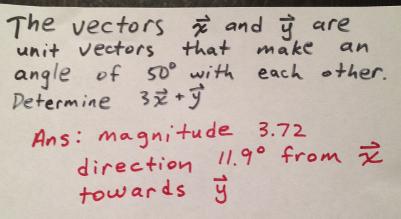 The vectors x⃗ and y⃗ are
unit vectors that make an
angle of 50° with each other.
Determine 3x⃗ + y⃗
Ans: magnitude 3.72
direction 11.9° from x⃗
towards y⃗